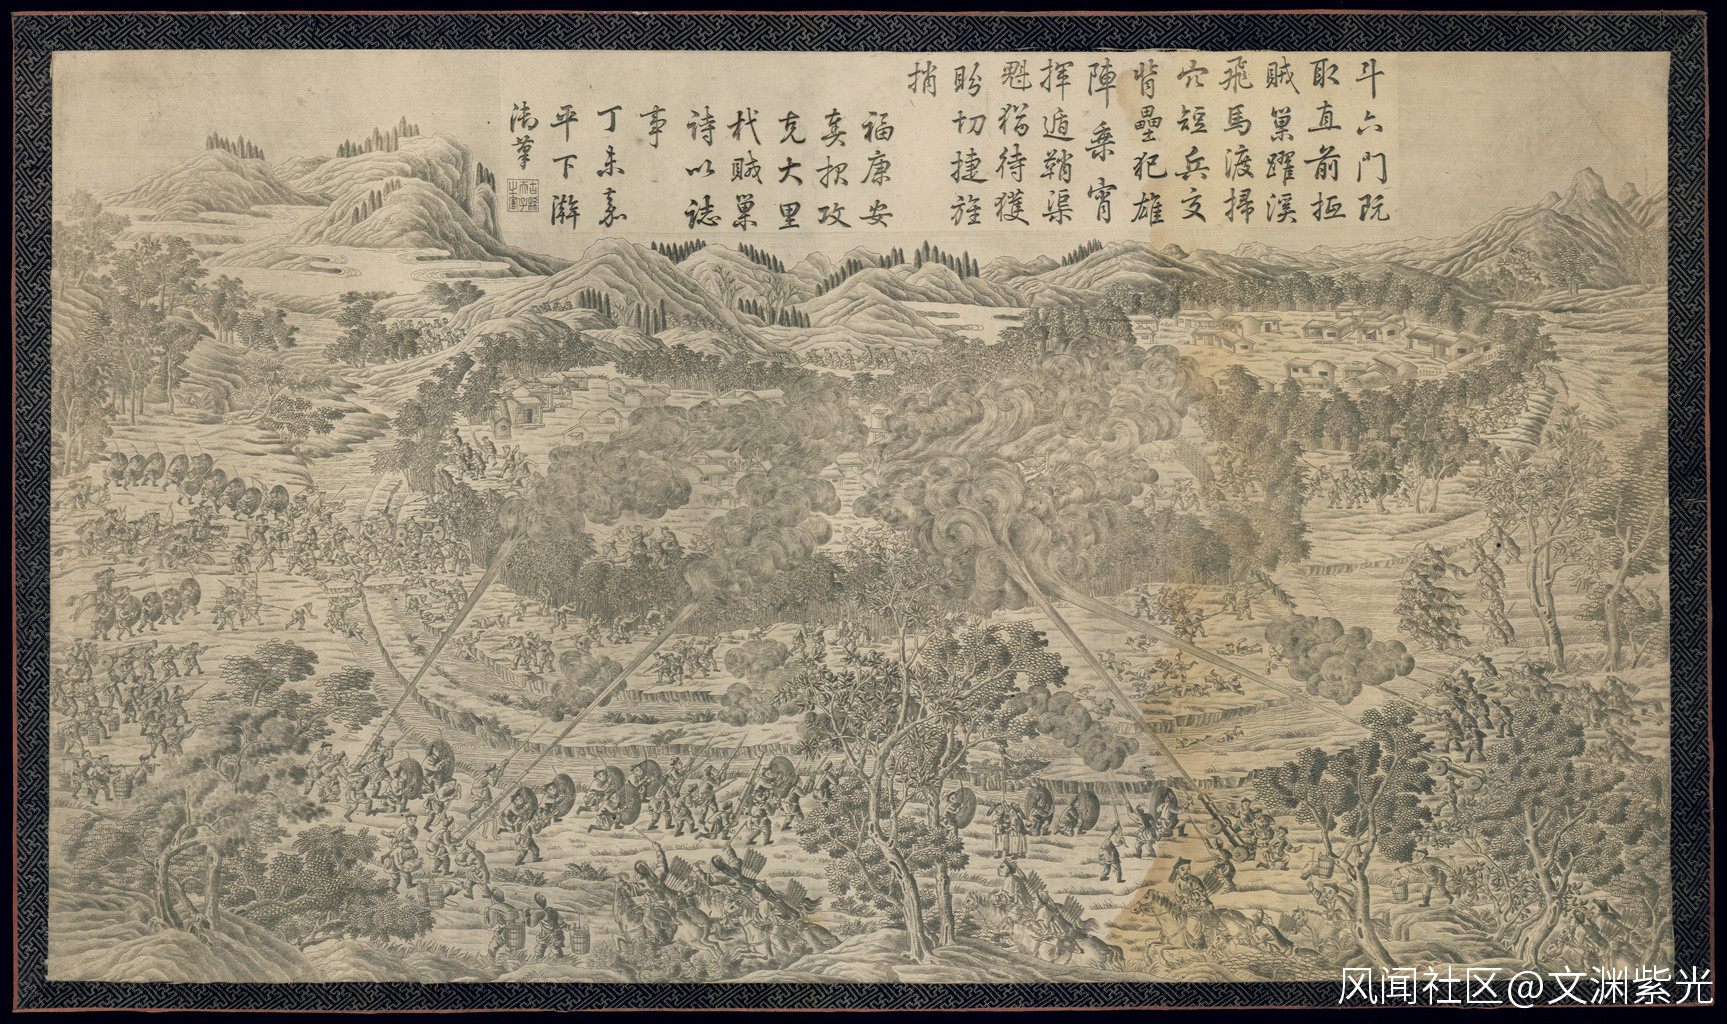 斗六門既
取直前抵
賊巢躍溪
飛馬渡掃
穴短兵交
背壘犯雄
陣乘宵
揮遁鞘渠
魁猶待獲
盼切捷旌
捎
福康安
奏報攻
克大里
杙賊巢
詩以誌
事
丁未嘉
平下澣
御筆
风闻社区@文渊紫光